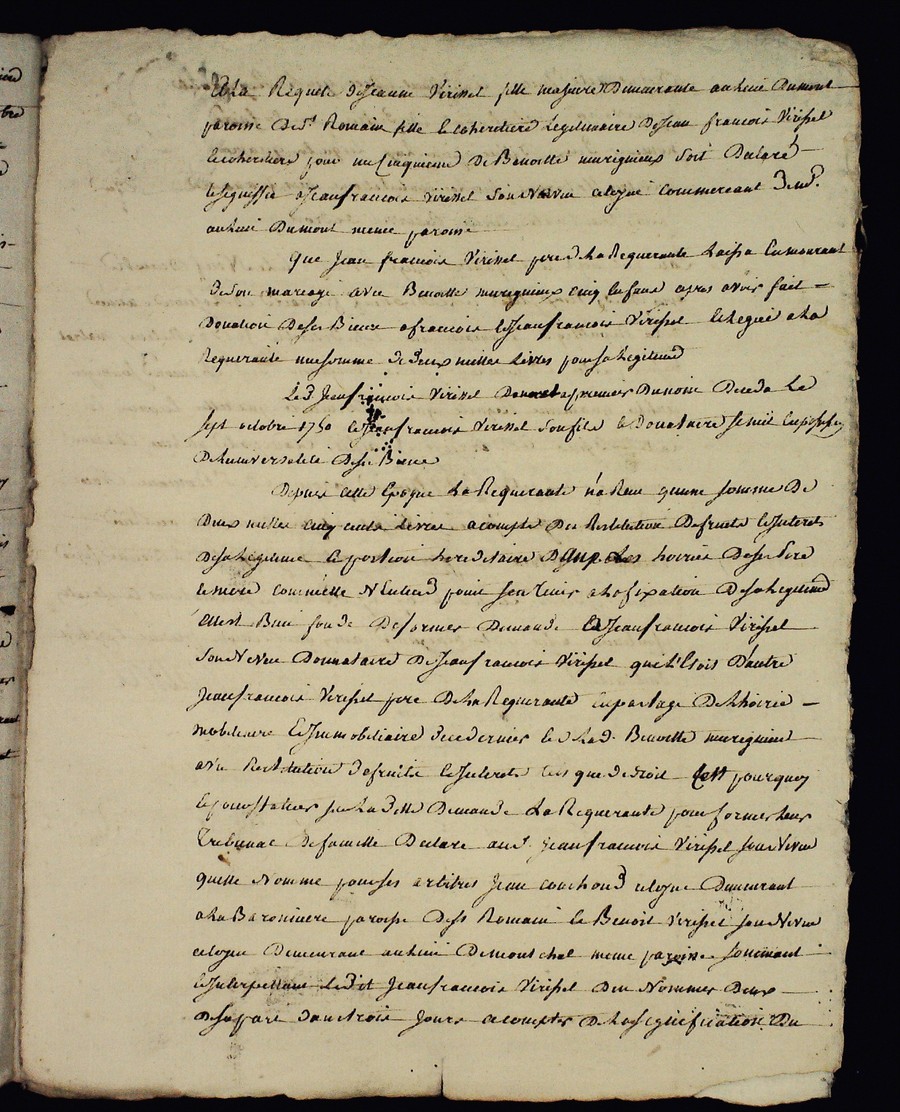 A la Requete de Jeanne Virissel fille majeure Demeurante au lieu Dumont
paroisse De St. Romain fille et coheritiere Legitimaire De Jean francois Virissel
et coheritiere pour un Cinquieme De Benoitte murigneux soit Declaré
et signiffié a Jean francois Virissel Son Neveu citoyen Commercant Demt.
au lieu Dumont meme paroisse
que Jean francois Virissel pere de La Requerante Laissa En mourant
De son mareage avec Benoitte murigneux cinq Enfans apres avoir fait
Donation De ses Biens a francois et Jean francois Virissel et legué a la
Requerante une somme de deux milles Livres pour sa Legitime
Led. Jean francois Virissel Donnat. premier Du nom Deceda Le
sept octobre 1750 et Jean francois Virissel son fils et Donataire se mit En possession
De Luniversalité De ses Biens
Depuis cette Epoque La Requerante n'a Recu qu'une somme De
Deux milles cinq cents Livres a compte Des Restitution De fruits et Interets
De sa Legitime et portion hereditaire Dans Les hoiries De ses Pere
et mere comme elle N'Entend point s'en Tenir a la fixation De sa Legitime
Elle est Bien fondé De former Demande a Jean francois Virissel
Son Neveu Donnataire De Jean francois Virissel qui L'Etois D'autre
Jean francois Virissel pere De La Requerante En partage De L'hoirie
mobiliaire Et Immobiliaire de ce dernier et de lad. Benoitte murigneux
avec Restitution de fruits et Interets tels que de droit C'est pourquoy
et pour statuer sur La ditte Demande La Requerante pour former leur
Tribunal De famille Declare aud. Jean francois Virissel son Neveu
quelle Nomme pour ses arbitres Jean couchoud citoyen Demeurant
a la Baroniere paroisse De St Romain et Benoit Virissel son Neveu
citoyen Demeurant au lieu De montchal meme paroisse sommant
et Interpellant Ledit Jean francois Virissel D'en Nommer Deux
De sa part dans trois jours a compter De La signification Du